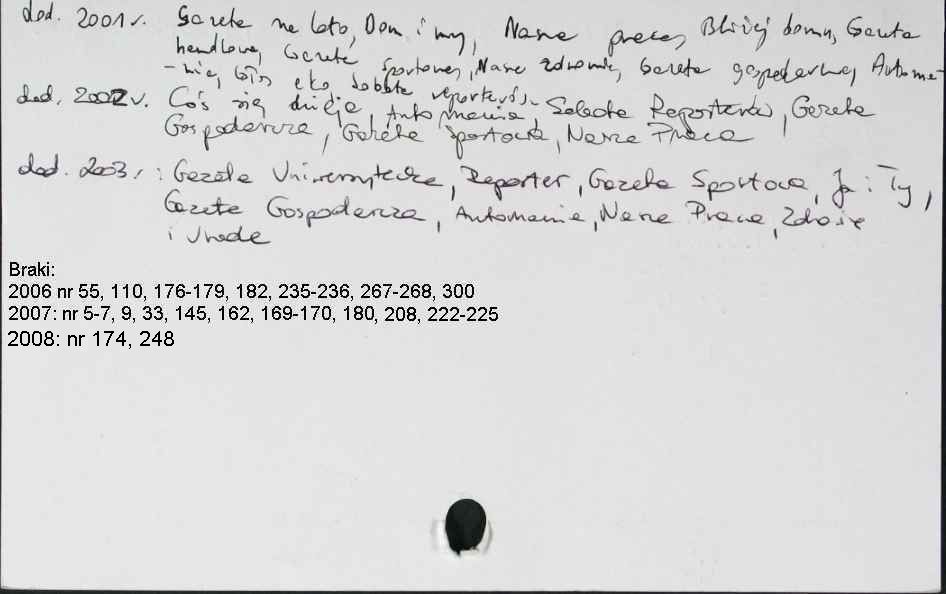 dod. 2001 r. Gazeta na lato, Dom i my, Nasza praca, Bliżej domu, Gazeta
handlowa, Gazeta Sportowa, Nasze zdrowie, Gazeta gospodarcza, Automa-
-nia, eko Sobota reporterów
dod. 2002 r. Coś się dzieje, Automania, Sobota Reporterów, Gazeta
Gospodarcza, Gazeta Sportowa, Nasza Praca
dod. 2003 r.: Gazeta Uniwersytecka, Reporter, Gazeta Sportowa, Ja i Ty,
Gazeta Gospodarcza, Automania, Nasza Praca, Zdrowie
i Uroda
Braki:
2006 nr 55, 110, 176-179, 182, 235-236, 267-268, 300
2007: nr 5-7, 9, 33, 145, 162, 169-170, 180, 208, 222-225
2008: nr 174, 248